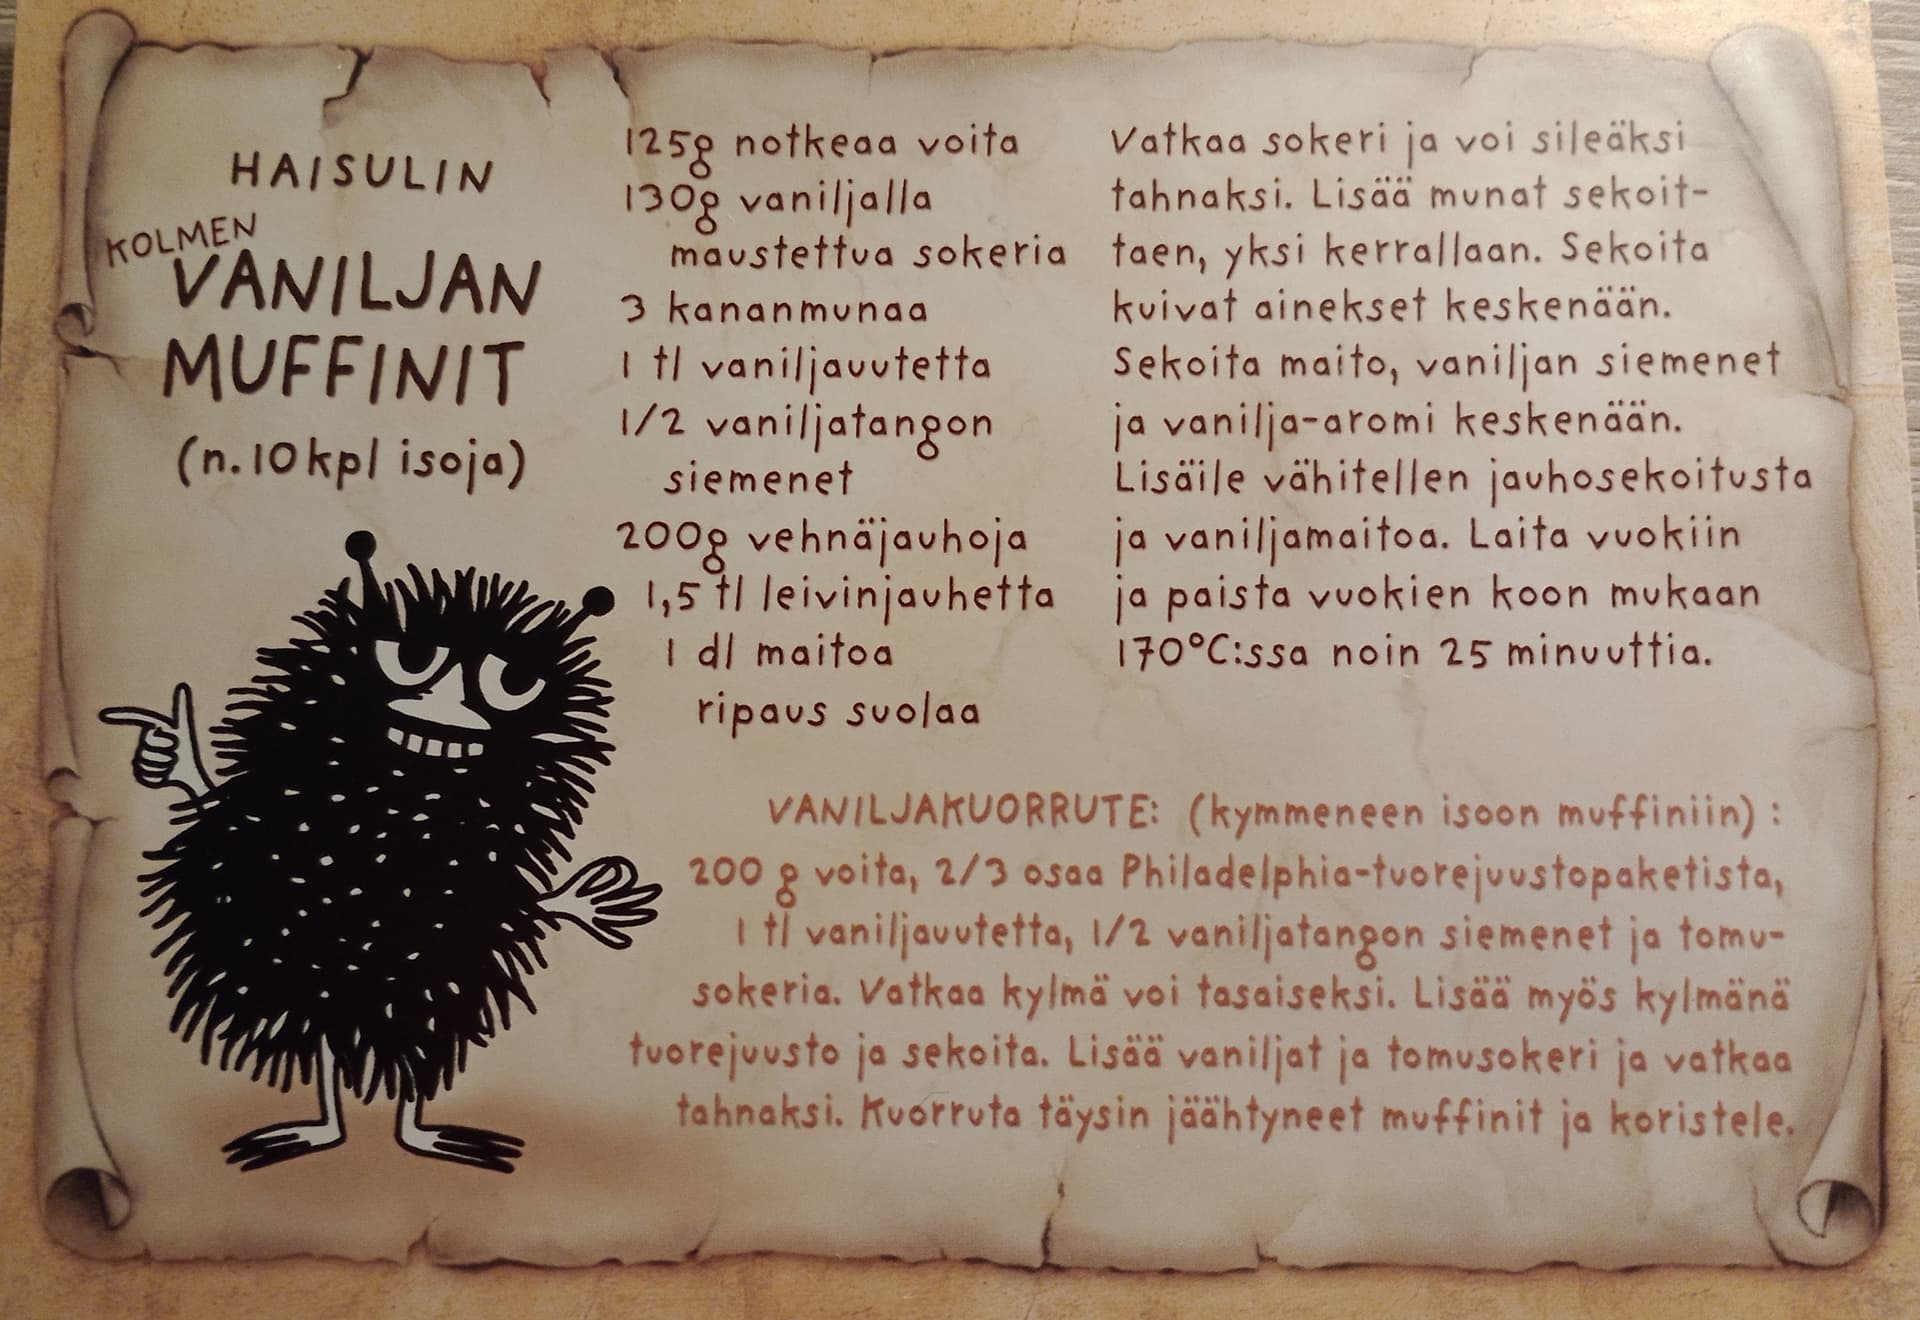 HAISULIN
KOLMEN
VANILJAN
MUFFINIT
(n. 10 kpl isoja)
125g notkeaa voita
130g vaniljalla
maustettua sokeria
3 kananmunaa
1 tl vaniljauutetta
1/2 vaniljatangon
siemenet
200g vehnäjauhoja
1,5 tl leivinjauhetta
1 dl maitoa
ripaus suolaa
Vatkaa sokeri ja voi sileäksi
tahnaksi. Lisää munat sekoit-
taen, yksi kerrallaan. Sekoita
kuivat ainekset keskenään.
Sekoita maito, vaniljan siemenet
ja vanilja-aromi keskenään.
Lisäile vähitellen jauhosekoitusta
ja vaniljamaitoa. Laita vuokiin
ja paista vuokien koon mukaan
170°C:ssa noin 25 minuuttia.
VANILJAKUORRUTE: (kymmeneen isoon muffiniin) :
200 g voita, 2/3 osaa Philadelphia-tuorejuustopaketista,
1 tl vaniljauutetta, 1/2 vaniljatangon siemenet ja tomu-
sokeria. Vatkaa kylmä voi tasaiseksi. Lisää myös kylmänä
tuorejuusto ja sekoita. Lisää vaniljat ja tomusokeri ja vatkaa
tahnaksi. Kuorruta täysin jäähtyneet muffinit ja koristele.